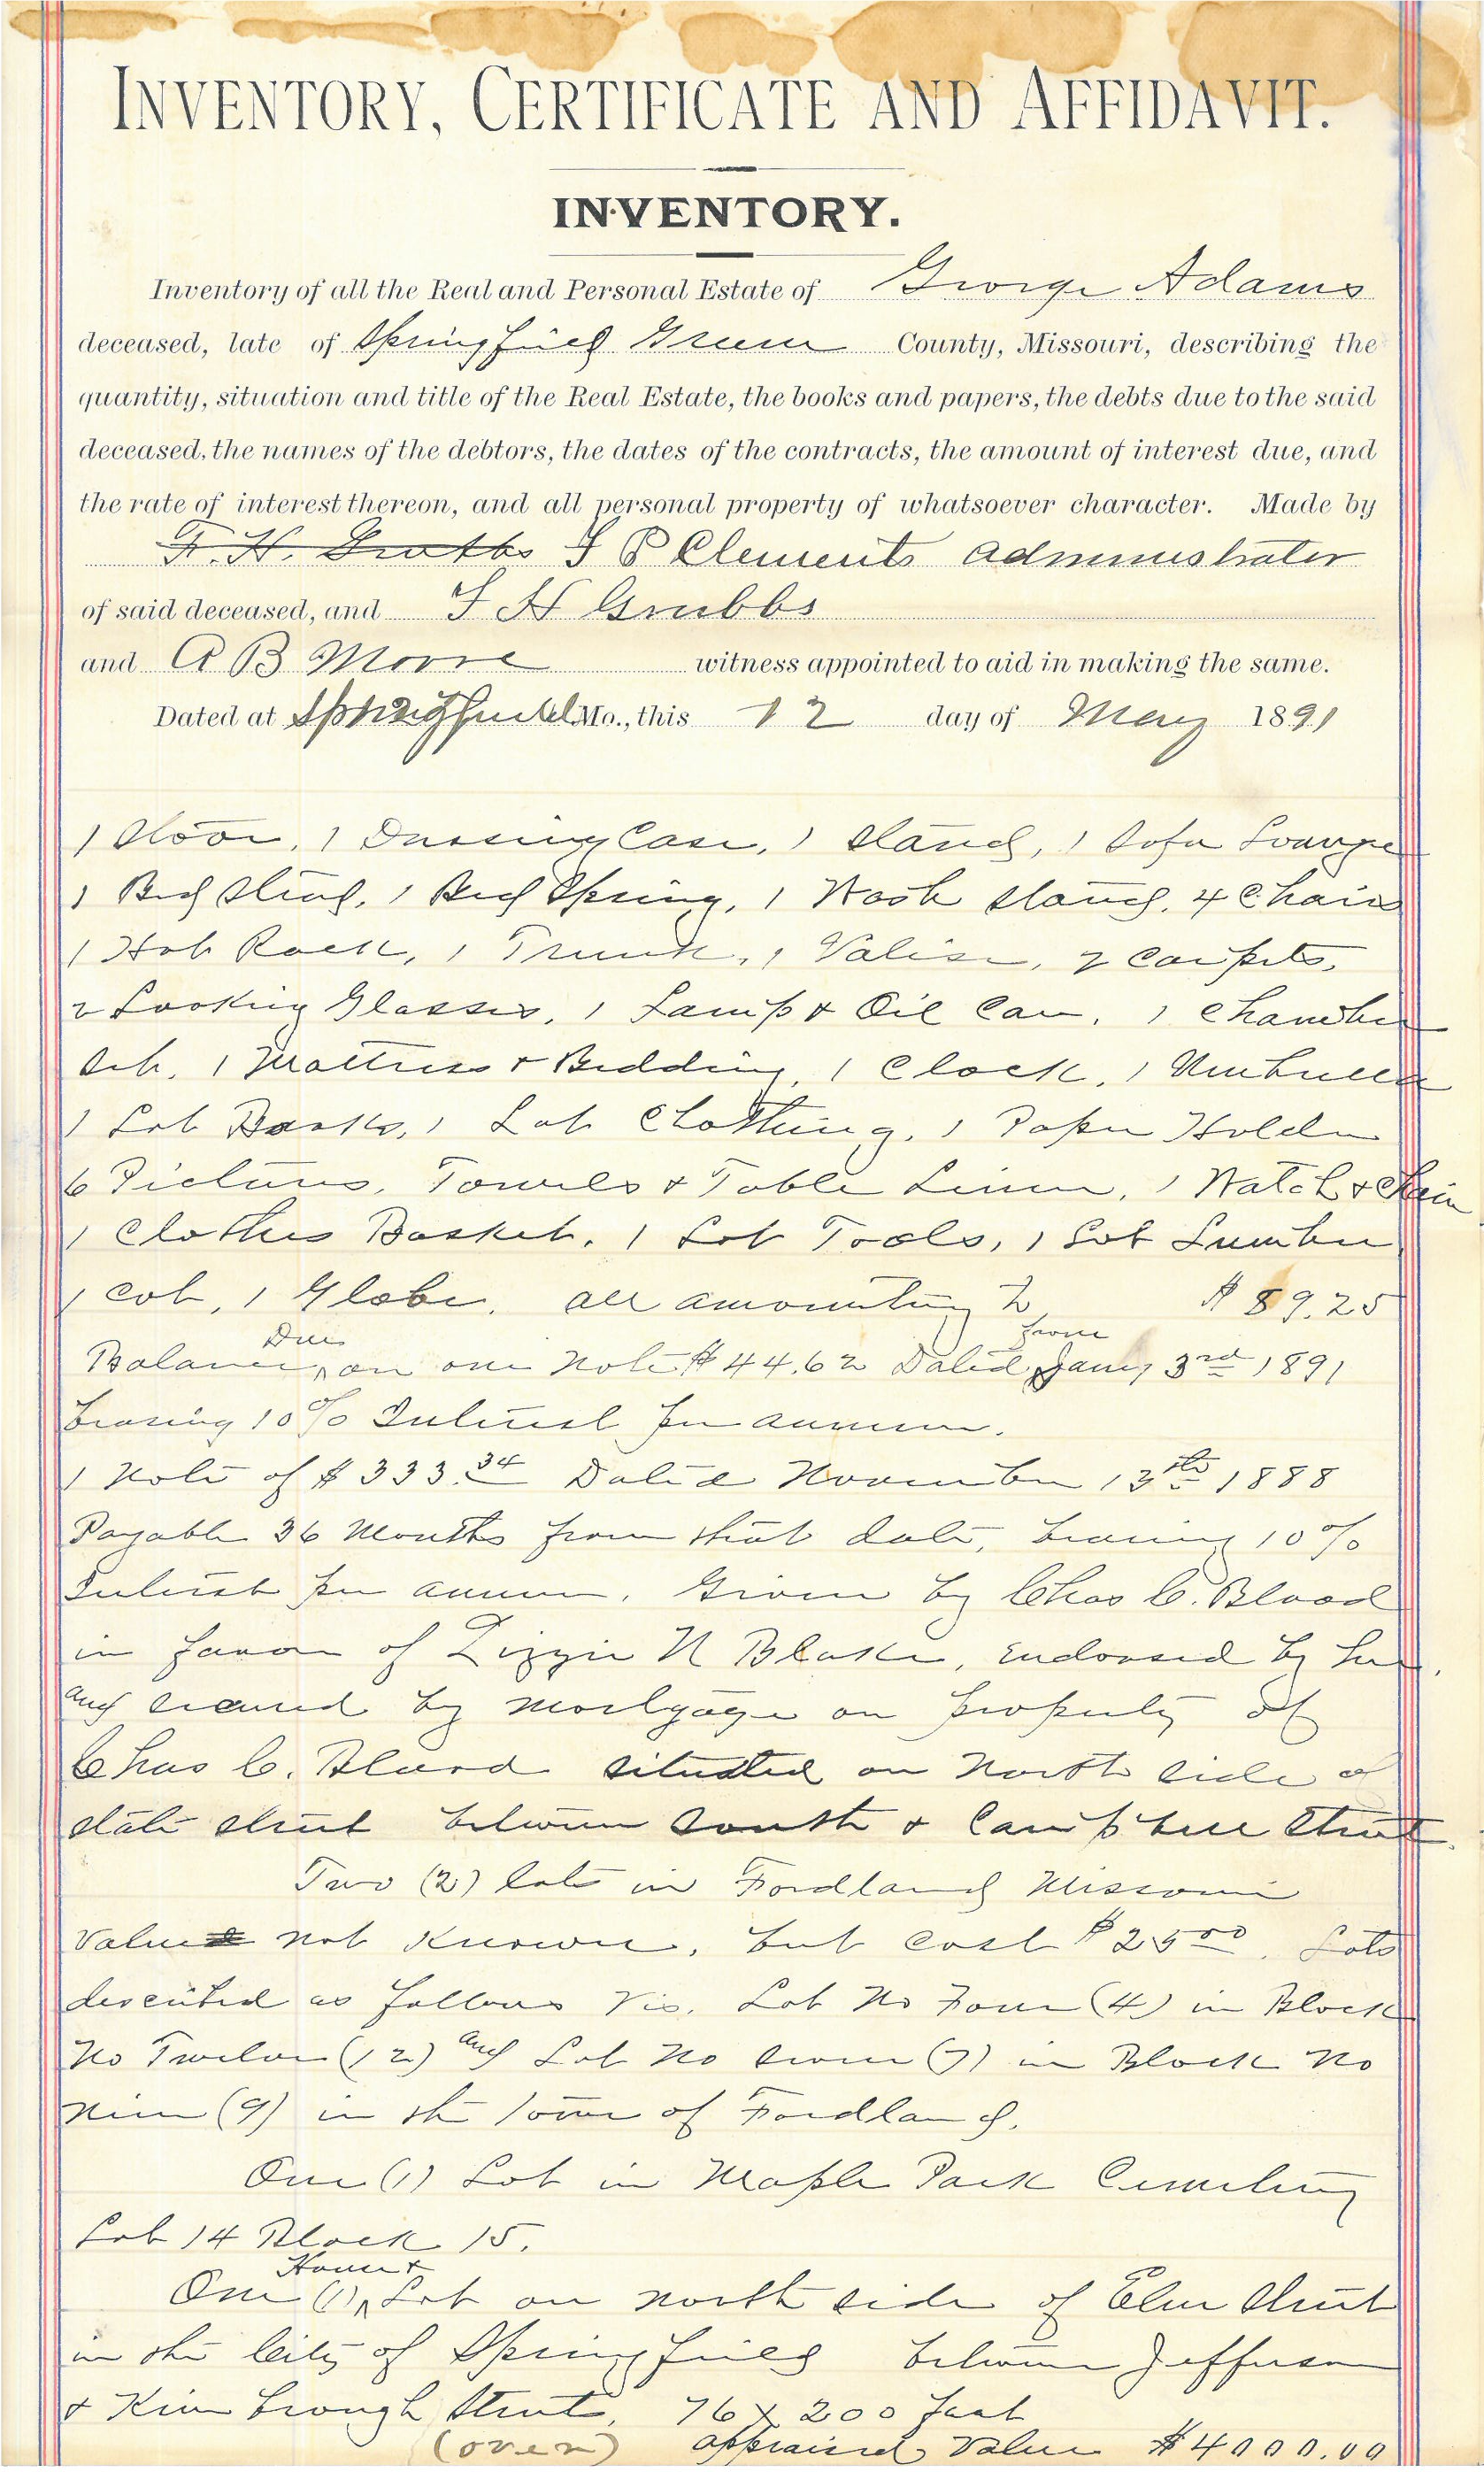 INVENTORY, CERTIFICATE AND AFFIDAVIT.
INVENTORY.
Inventory of all the Real and Personal Estate of George Adams
deceased, late of Springfield Green County, Missouri, describing the
quantity, situation and title of the Real Estate, the books and papers, the debts due to the said
deceased, the names of the debtors, the dates of the contracts, the amount of interest due, and
the rate of interest thereon, and all personal property of whatsoever character. Made by
F. H. Grubbs J P Clements administrator
of said deceased, and F H Grubbs
and A B Moore witness appointed to aid in making the same.
Dated at Springfield Mo., this 12 day of May 1891
1 Stove, 1 Dressing Case, 1 Stand, 1 Sofa Lounge
1 Bed Stead, 1 Bed Spring, 1 Wash Stand, 4 Chairs
1 Hat Rack, 1 Trunk, 1 Valise, 2 Carpets,
2 Looking Glasses, 1 Lamp & Oil Can, 1 Chamber
Set, 1 Mattress & Bedding, 1 Clock, 1 Umbrella
1 Lot Books, 1 Lot Clothing, 1 Paper Holder
6 Pictures, Towels & Table Linen, 1 Watch & Chain
1 Clothes Basket, 1 Lot Tools, 1 Lot Lumber
1 Cot, 1 Globe, all amounting to $ 89.25
Balance Due on one note $44.62 Dated from Jany 3rd 1891
bearing 10% Interest per annum.
1 Note of $333.34 Dated November 13th 1888
Payable 36 Months from that date, bearing 10%
Interest per annum, Given by Chas C. Blood
in favor of Lizzie N Blake, endorsed by her,
and secured by mortgage on property of
Chas C. Blood situated on North side of
State Street between South & Campbell Street.
Two (2) lots in Fordland Missouri
Value not known, but cost $25.00. Lots
described as follows Viz. Lot No Four (4) in Block
No Twelve (12) and Lot No Seven (7) in Block No
Nine (9) in the town of Fordland.
One (1) Lot in Maple Park Cemetery
Lot 14 Block 15.
One (1) House & Lot on north side of Elm Street
in the City of Springfield between Jefferson
& Kimbrough Street, 76 x 200 feet
(over) appraised Value $4000.00